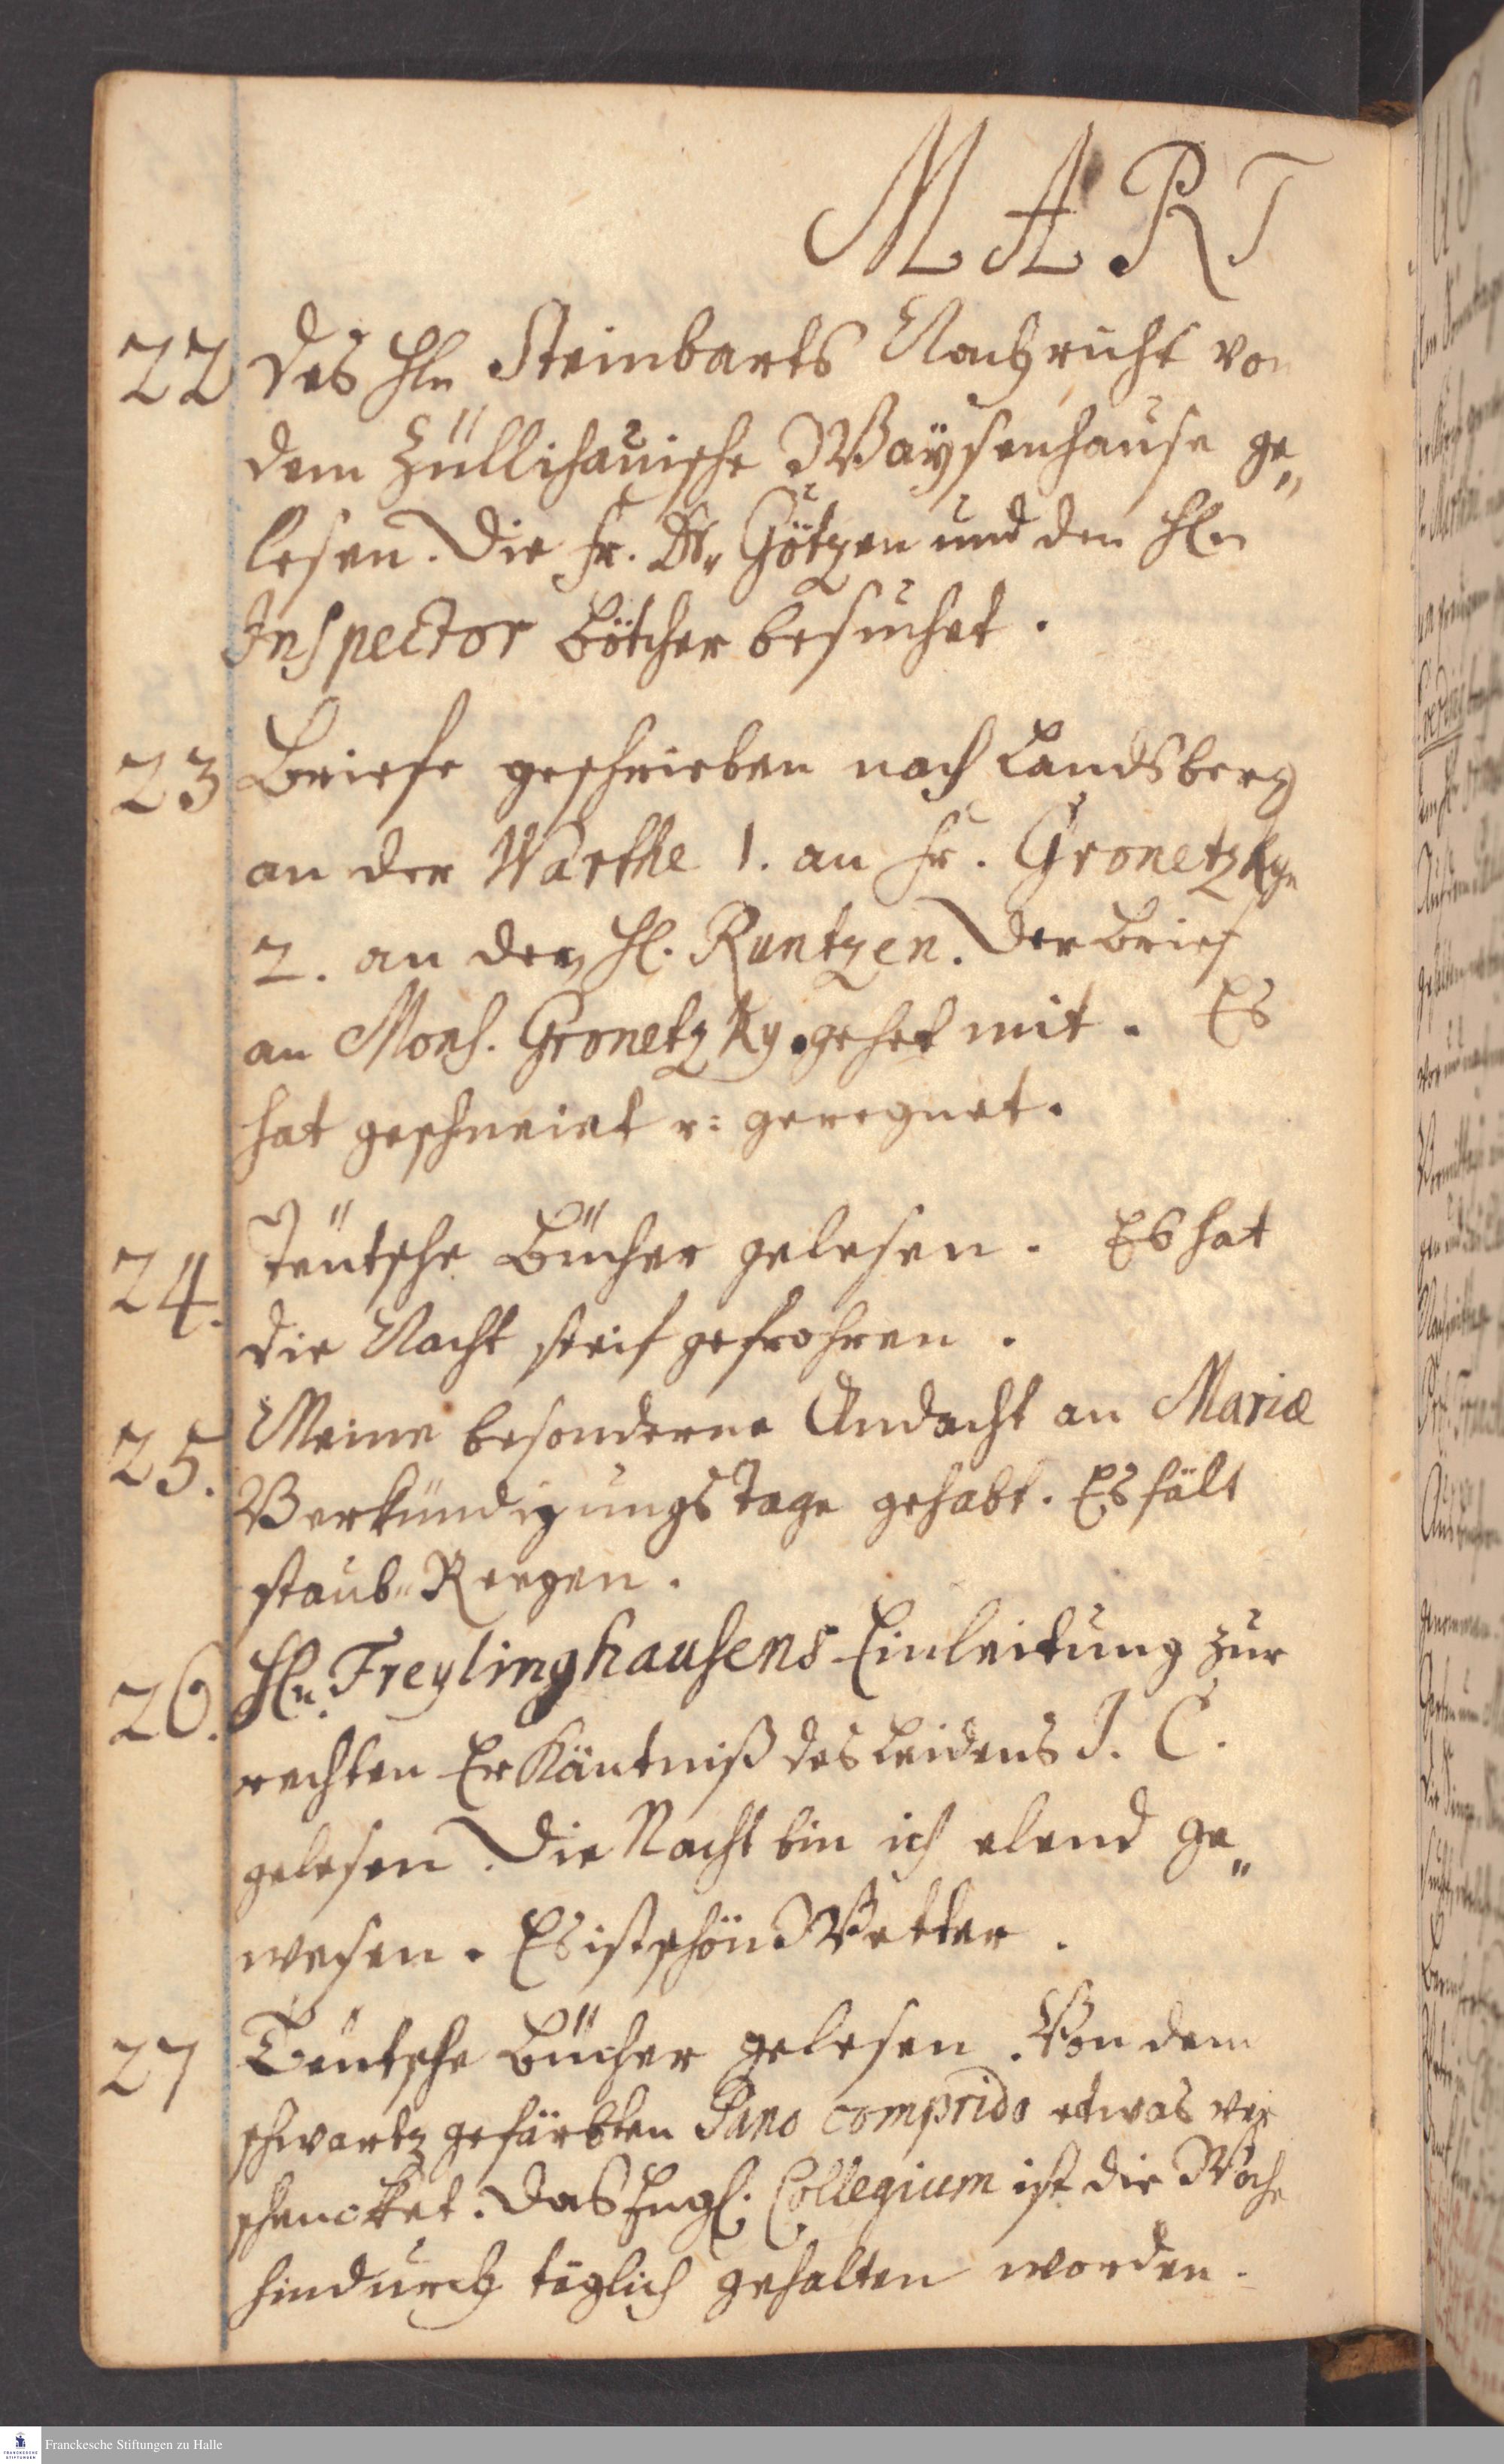 MART
22 des Hln Steinbarts Nachricht von
dem Züllichauische Waÿsenhause ge„
lesen. Die Fr. Dr. Götzen und den Hln
Inspector Bötcher besuchet.
23 Briefe geschrieben nach Landsberg
an der Warthe 1. an Fr. Gronetzkyn
2. an den Hl. Runtzen. Der Brief
an Mons. Gronetzky. gehet mit. Es
hat geschneiet u: geregnet.
24. Teütsche Bücher gelesen. Es hat
die Nacht steif gefrohren.
25. Meine besondere Andacht an Mariæ
Verkündigungs Tage gehabt. Es fält
staub-Reegen.
26. Hln. Freylinghausens Einleitung zur
rechten Erkäntniß des Leidens J. C.
gelesen. Die Nacht bin ich elend ge„
wesen. Es ist schön Wetter.
27 Teütsche Bücher gelesen. Von dem
schwartz gefärbten Pano comprido etwas ver
schencket. Das Engl. Collegium ist die Woche
hindurch täglich gehalten worden.
Franckesche Stiftungen zu Halle